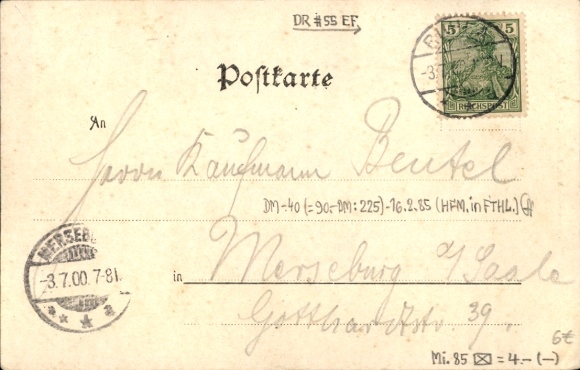 DR #55 EF.
5 5
REICHSPOST
Postkarte
An
Herrn Kaufmann Beutel
DM-40 (=90.-DM: 225)-16.2.85 (HFM. in FTHL.)
MERSEB
-3.7.00. 7-8
in Merseburg a/Saale
Gotthardtstr. 39.
6€
Mi. 85 = 4.- (-)